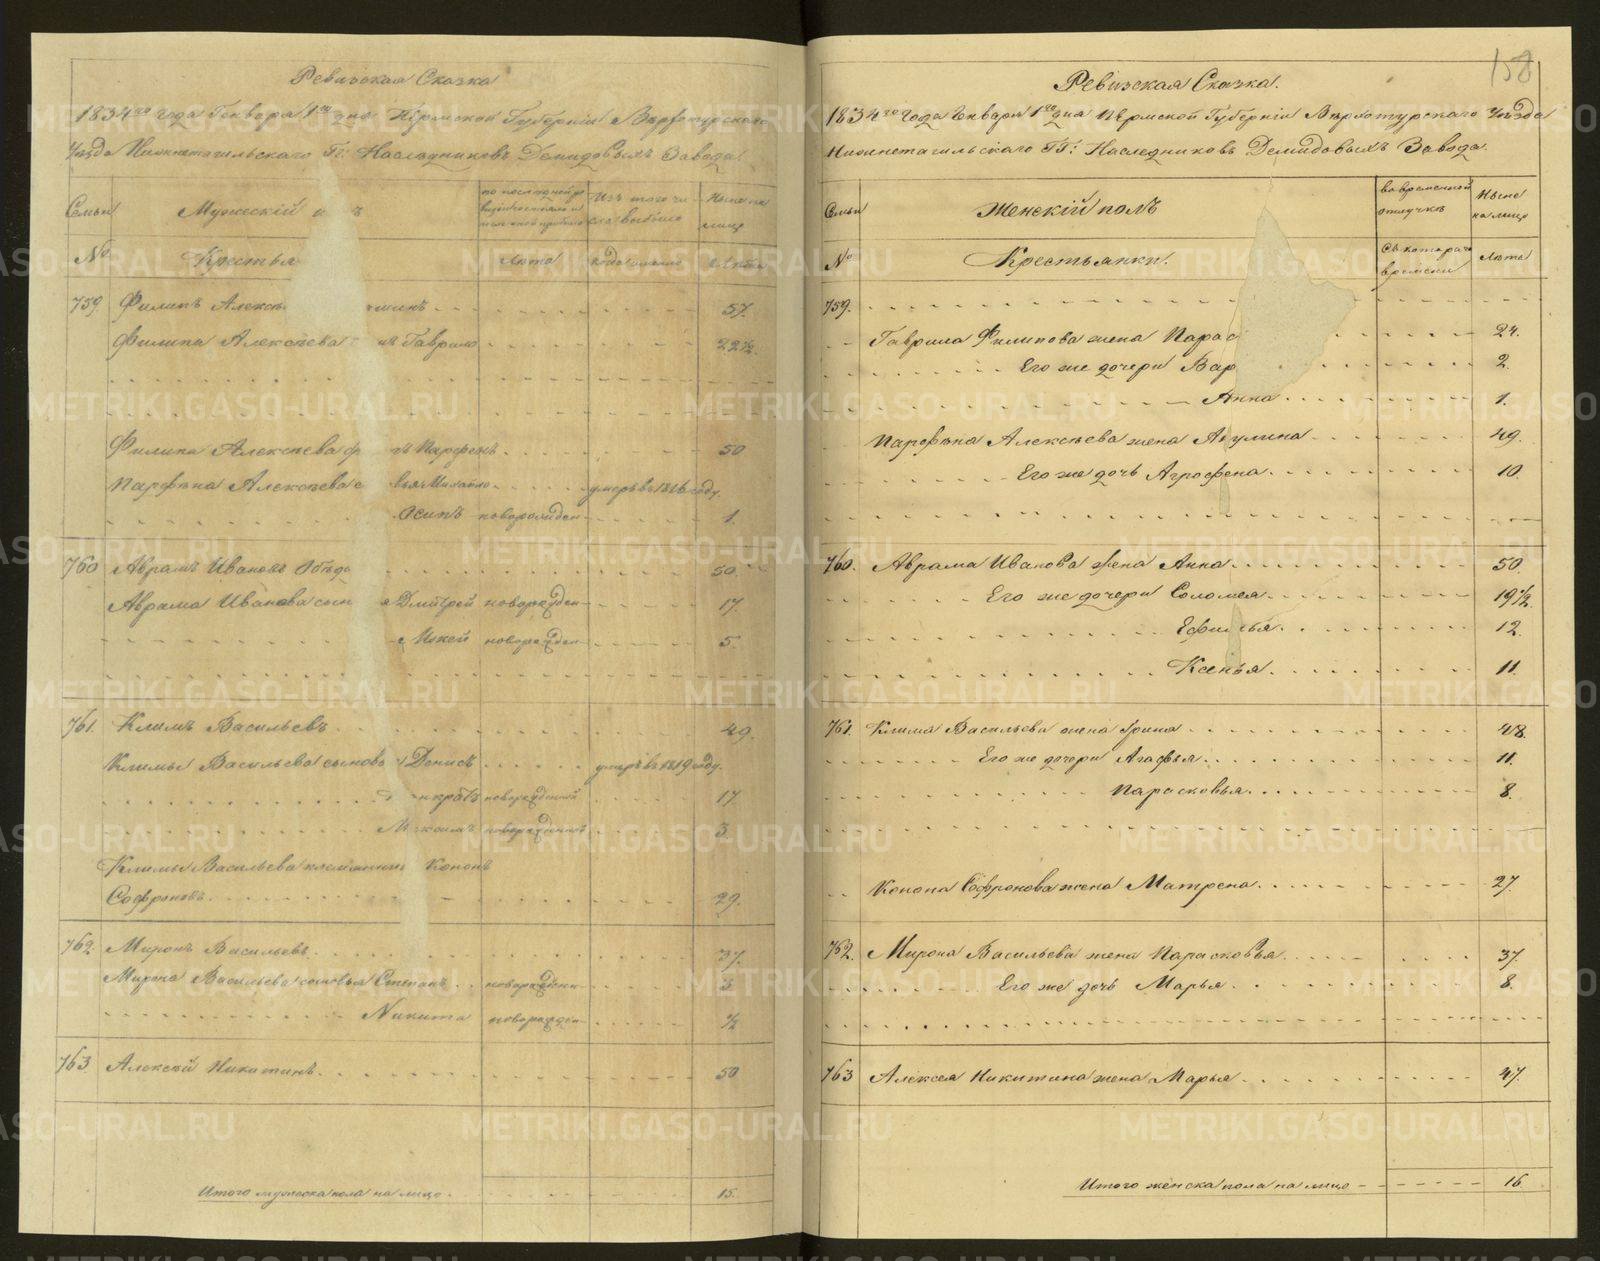 158
Ревизская Сказка
1834го года Генваря 1го дня Пермской Губерніи Верхотурскаго
Уезда Нижнетагильскаго Гг: Наследниковъ Демидовыхъ Завода.
Семьи Мужескій по последней ревизіи состояло и Изъ того числа выбыло Ныне на лицо
№ Крестья Лета когда именно Лета
759. Филипъ Алексе 57.
Филипа Алексеева Гаврило 22½.
Филипа Алексеева Парфенъ 50
Парфена Алексеева Михайло умеръ в 1826 году.
Осипъ новорожден 1.
760 Аврамъ Ивановъ Обědо 50.
Аврама Иванова сын Дмитрей новорожден 17.
Мокей новорожден 5.
761. Климъ Васильевъ 49.
Климы Васильева сынов Денисъ умеръ в 1819 году.
нкратъ новорожденной 17
новорожденной 3.
Климы Васильева племянник Кононъ
Софроновъ 29.
762. Миронъ Васильевъ 37.
Мирона Васильева сыновья Степанъ новорожден 5
Никита новорожден ½
763. Алексей Никитинъ 50
Итого мужеска пола на лицо 15.
Ревизская Сказка.
1834го года Генваря 1го дня Пермской Губерніи Верхотурскаго Уезда
Нижнетагильскаго ГГ: Наследниковъ Демидовыхъ Завода.
Семьи Женскій полъ во временной отлучке Ныне на лицо
№ Крестьянки. Съ котораго времени Лета
759.
Гаврила Филипова жена Парас 24.
Его же дочери Вар 2.
Анна 1.
Парфена Алексеева жена Акулина 49.
Его же дочь Агрофена. 10.
760. Аврама Иванова жена Анна 50.
Его же дочери Соломея 19½.
Ефимья. 12.
Ксенья. 11.
761. Клима Васильева жена Ірина 48.
Его же дочери Агафья 11.
Парасковья. 8.
Конона Софронова жена Матрена. 27.
762. Мирона Васильева жена Парасковья 37.
Его же дочь Марья. 8.
763 Алексея Никитина жена Марья 47.
Итого женска пола на лицо 16